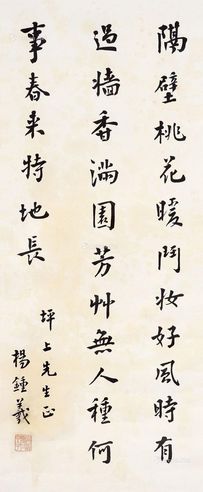 隔壁桃花暖鬥妝好風時有
過牆香滿園芳艸無人種何
事春来特地長
坪上先生正
楊鍾羲